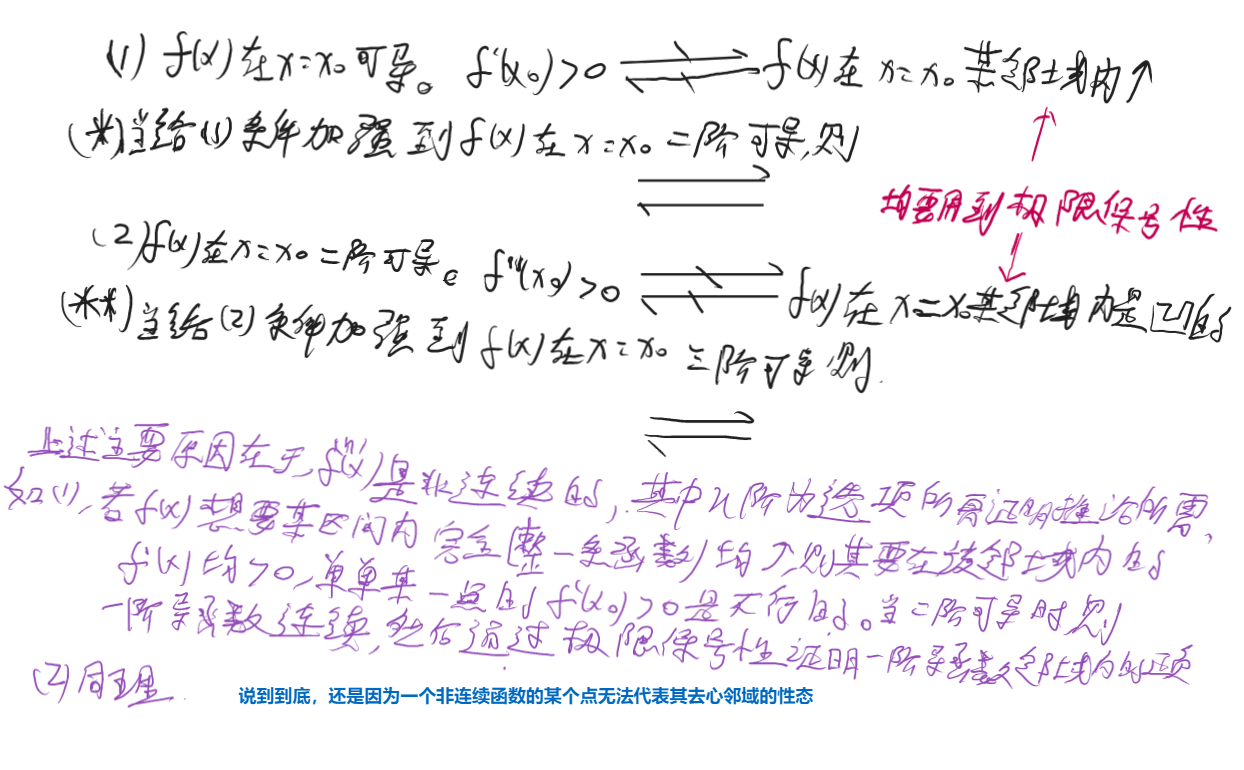 (1) f(x)在x=x₀可导。 f'(x₀)>0 ⇌ f(x)在x=x₀某邻域内↑
(*)当给(1)条件加强到f(x)在x=x₀二阶可导,则
⇌
均要用到极限保号性
(2)f(x)在x=x₀二阶可导。 f''(x₀)>0 ⇌ f(x)在x=x₀某邻域内是凹的
(**)当给(2)条件加强到f(x)在x=x₀三阶可导,则.
⇌
上述主要原因在于,f⁽ⁿ⁾(x)是非连续的,其中n阶为选项所需证明推论所需,
如(1),若f(x)想要某区间内完全(整一条函数)均↑,则其要在该邻域内的
f'(x)均>0,单单某一点的f'(x₀)>0是不行的。当二阶可导时,则
一阶导函数连续,然后通过极限保号性证明一阶导函数邻域内的正负
(2)同理.
说到到底，还是因为一个非连续函数的某个点无法代表其去心邻域的性态